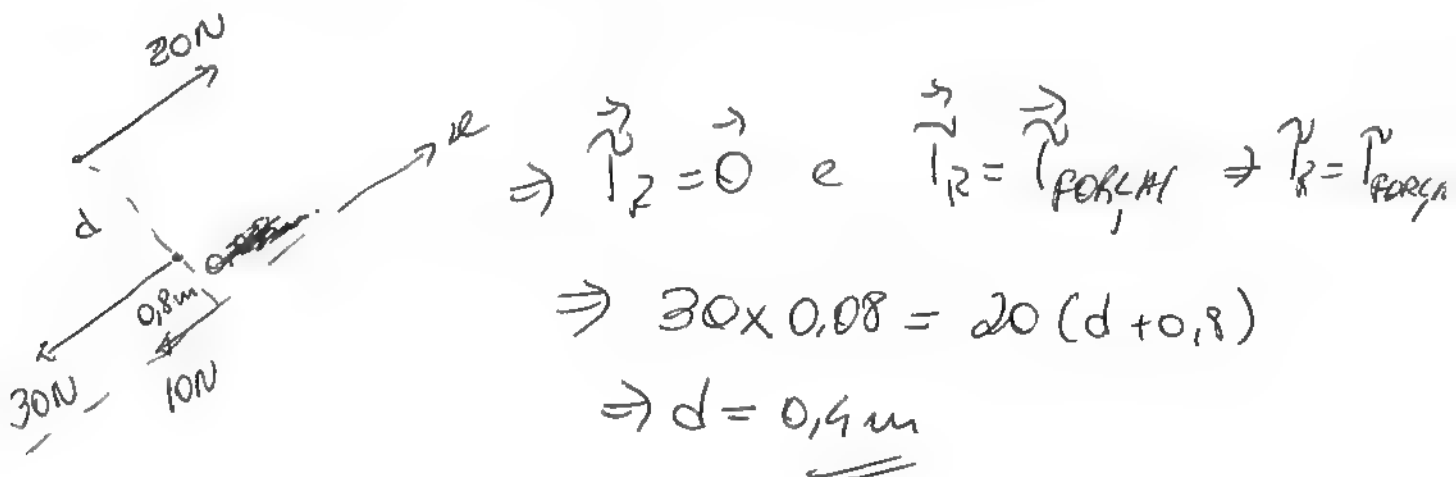 20N
d
0,8m
30N
10N
⇒ τ⃗_R = 0⃗ e τ⃗_R = τ⃗_FORÇAS ⇒ τ_R = τ_FORÇA
⇒ 30x0,08 = 20(d+0,8)
⇒ d = 0,4m